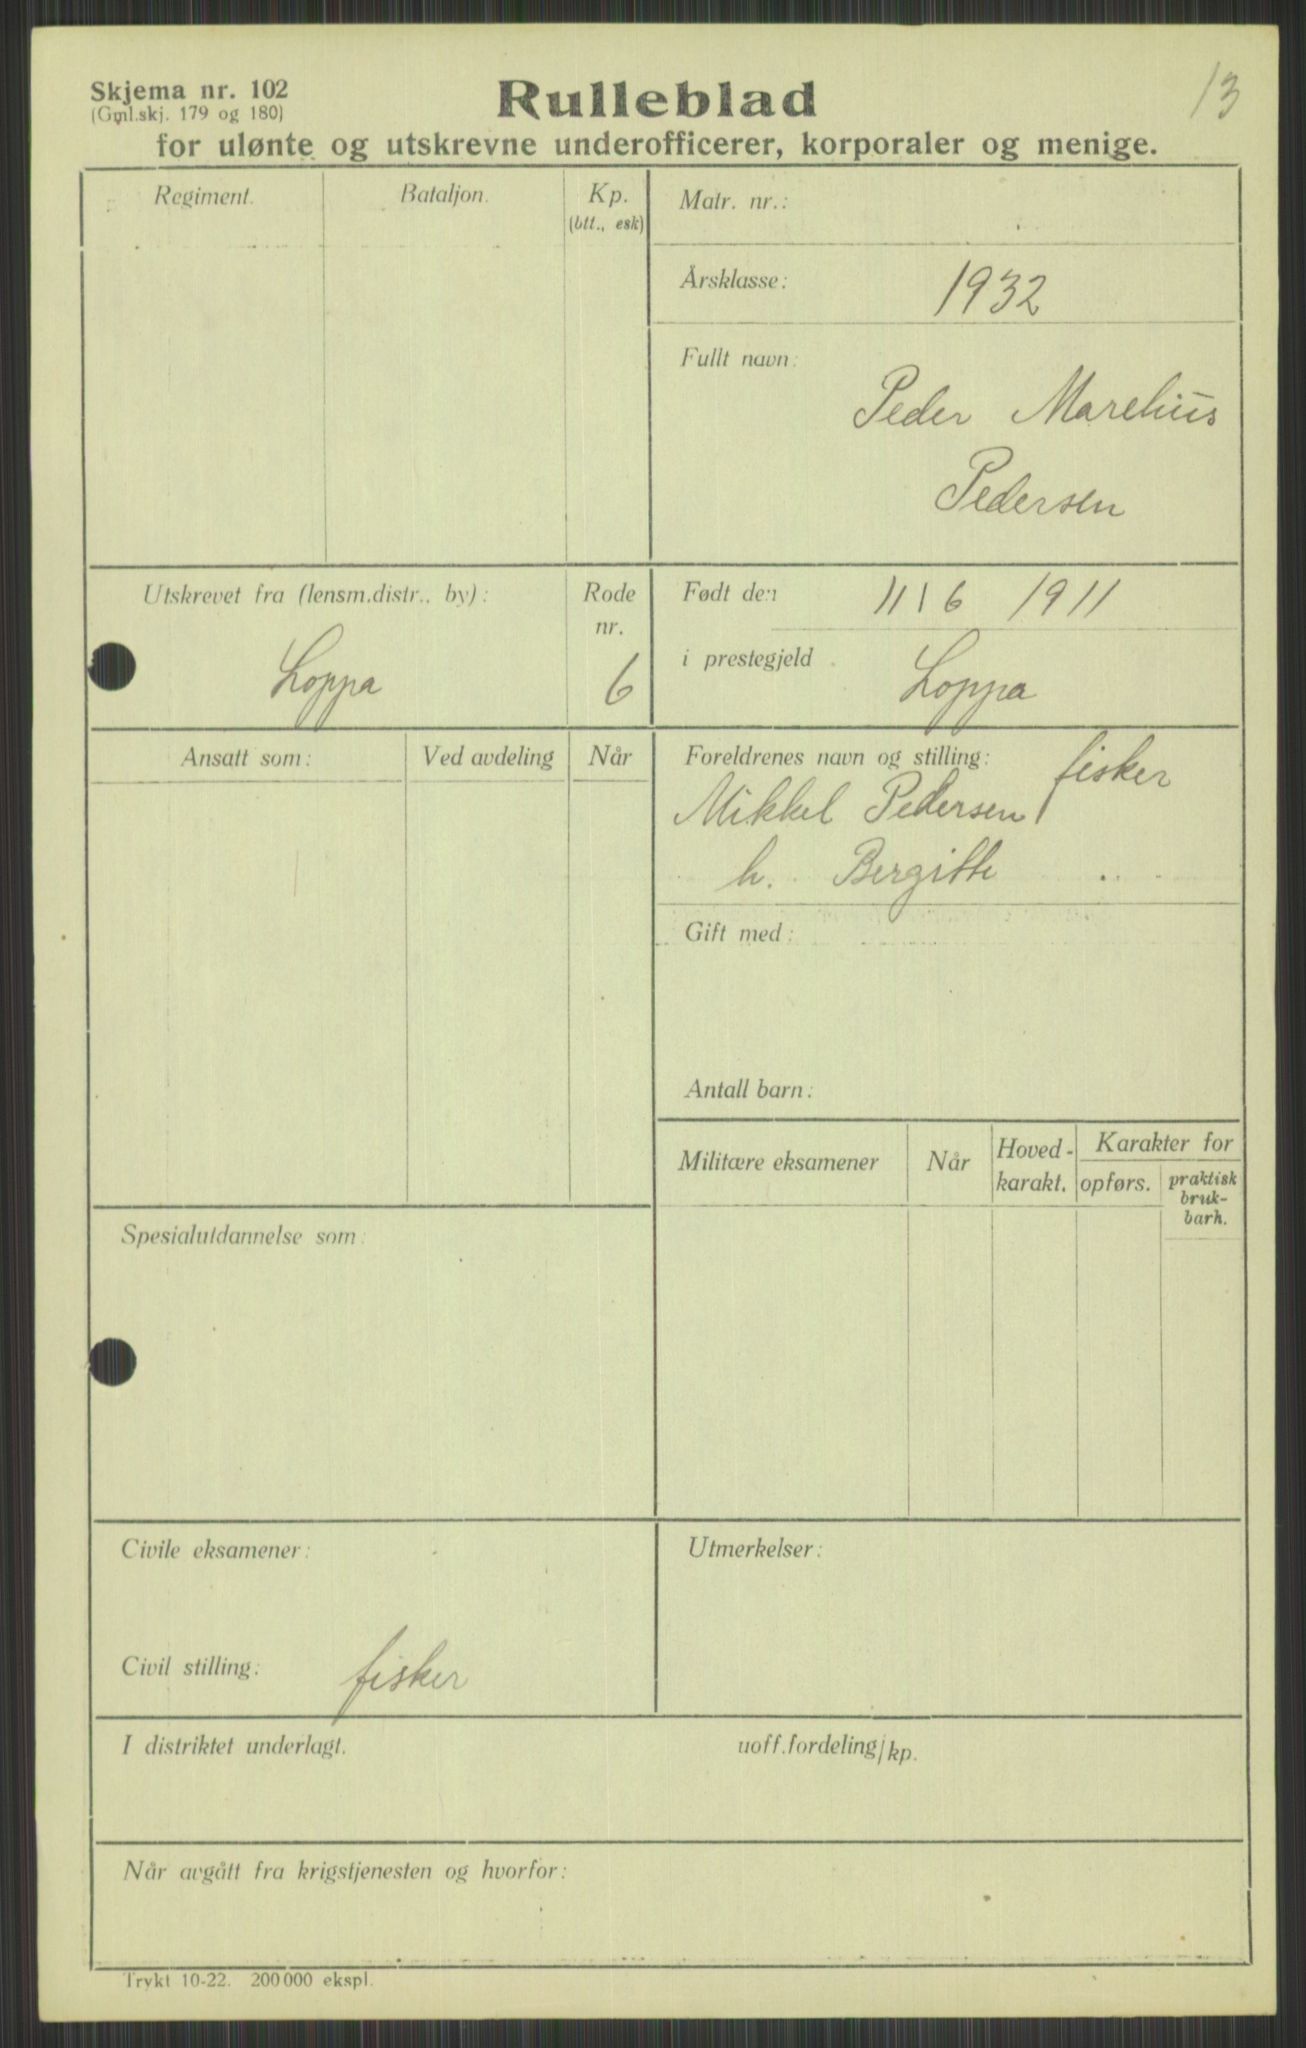 13
Skjema nr. 102
(Gml.skj. 179 og 180)
Rulleblad
for ulønte og utskrevne underofficerer, korporaler og menige.
Regiment. Bataljon. Kp.
(btt., esk)
Matr. nr.:
Årsklasse: 1932
Fullt navn:
Peder Marelius
Pedersen
Utskrevet fra (lensm.distr., by): Rode
nr.
Loppa 6
Født den 11/6 1911
i prestegjeld Loppa
Ansatt som: Ved avdeling Når
Foreldrenes navn og stilling: fisker
Mikkel Pedersen
h. Bergitte
Gift med:
Antall barn:
Militære eksamener Når Hoved-
karakt. Karakter for
opførs. praktisk
bruk-
barh.
Spesialutdannelse som:
Civile eksamener:
Utmerkelser:
Civil stilling: fisker
I distriktet underlagt. uoff.fordeling/kp.
Når avgått fra krigstjenesten og hvorfor:
Trykt 10-22. 200 000 ekspl.